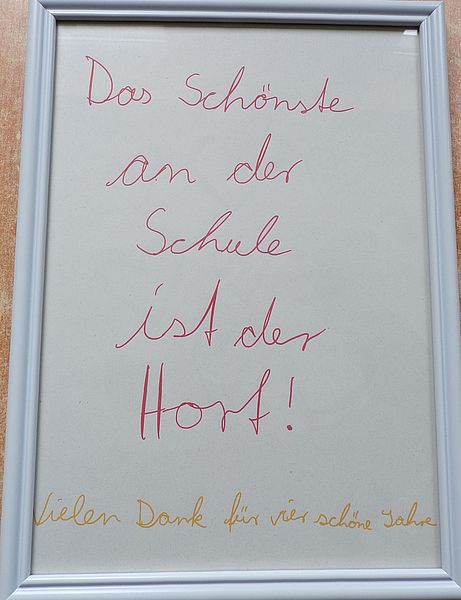 Das Schönste
an der
Schule
ist der
Hort!
Vielen Dank für vier schöne Jahre